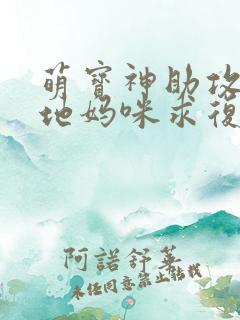 萌寶神助攻
地媽咪求復
阿諾舒英
未经同意禁止转载